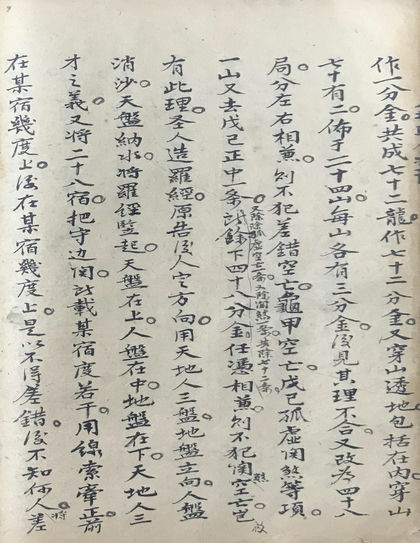 作一分金。共成七十二龍作七十二分金又穿山透地包括在內。穿山
七十有二。佈于二十四山。每山各有三分金後見其理不合。又改為四十八
局。分左右相兼。則不犯差錯空亡。龜甲空亡。戊己孤虛関煞等項。
一山又去戊己正中一条。餘下四十八分金。任憑相兼。則不犯関空亡
有此理。圣人造羅經原告後人定方向用天地人三盤。地盤立向。人盤
消沙。天盤納水。將羅經竪起。天盤在上。人盤在中。地盤在下。天地人三
才之義。又將二十八宿。把守边関。載某宿度若干。用線索牽正前
在某宿幾度上。後在某宿幾度上。是以不得差錯。後不知何人差